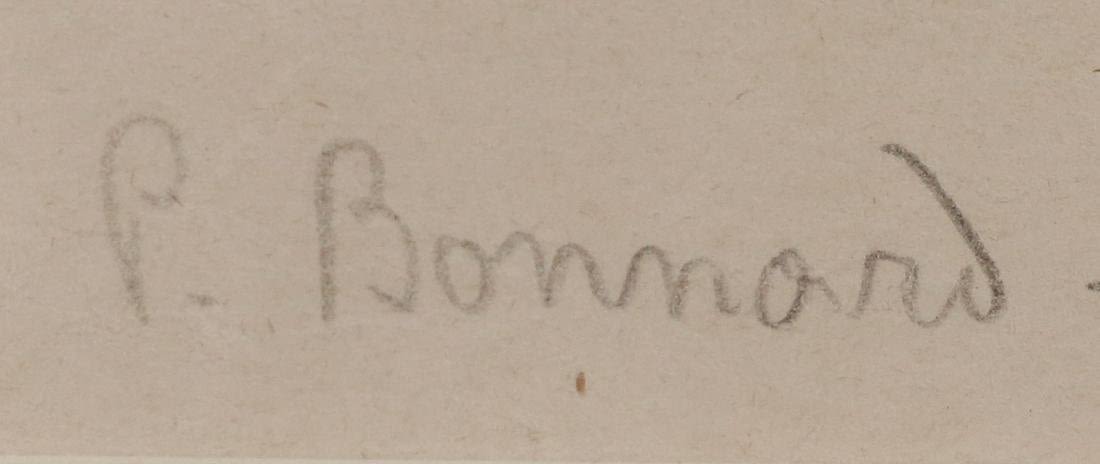 P. Bonnard